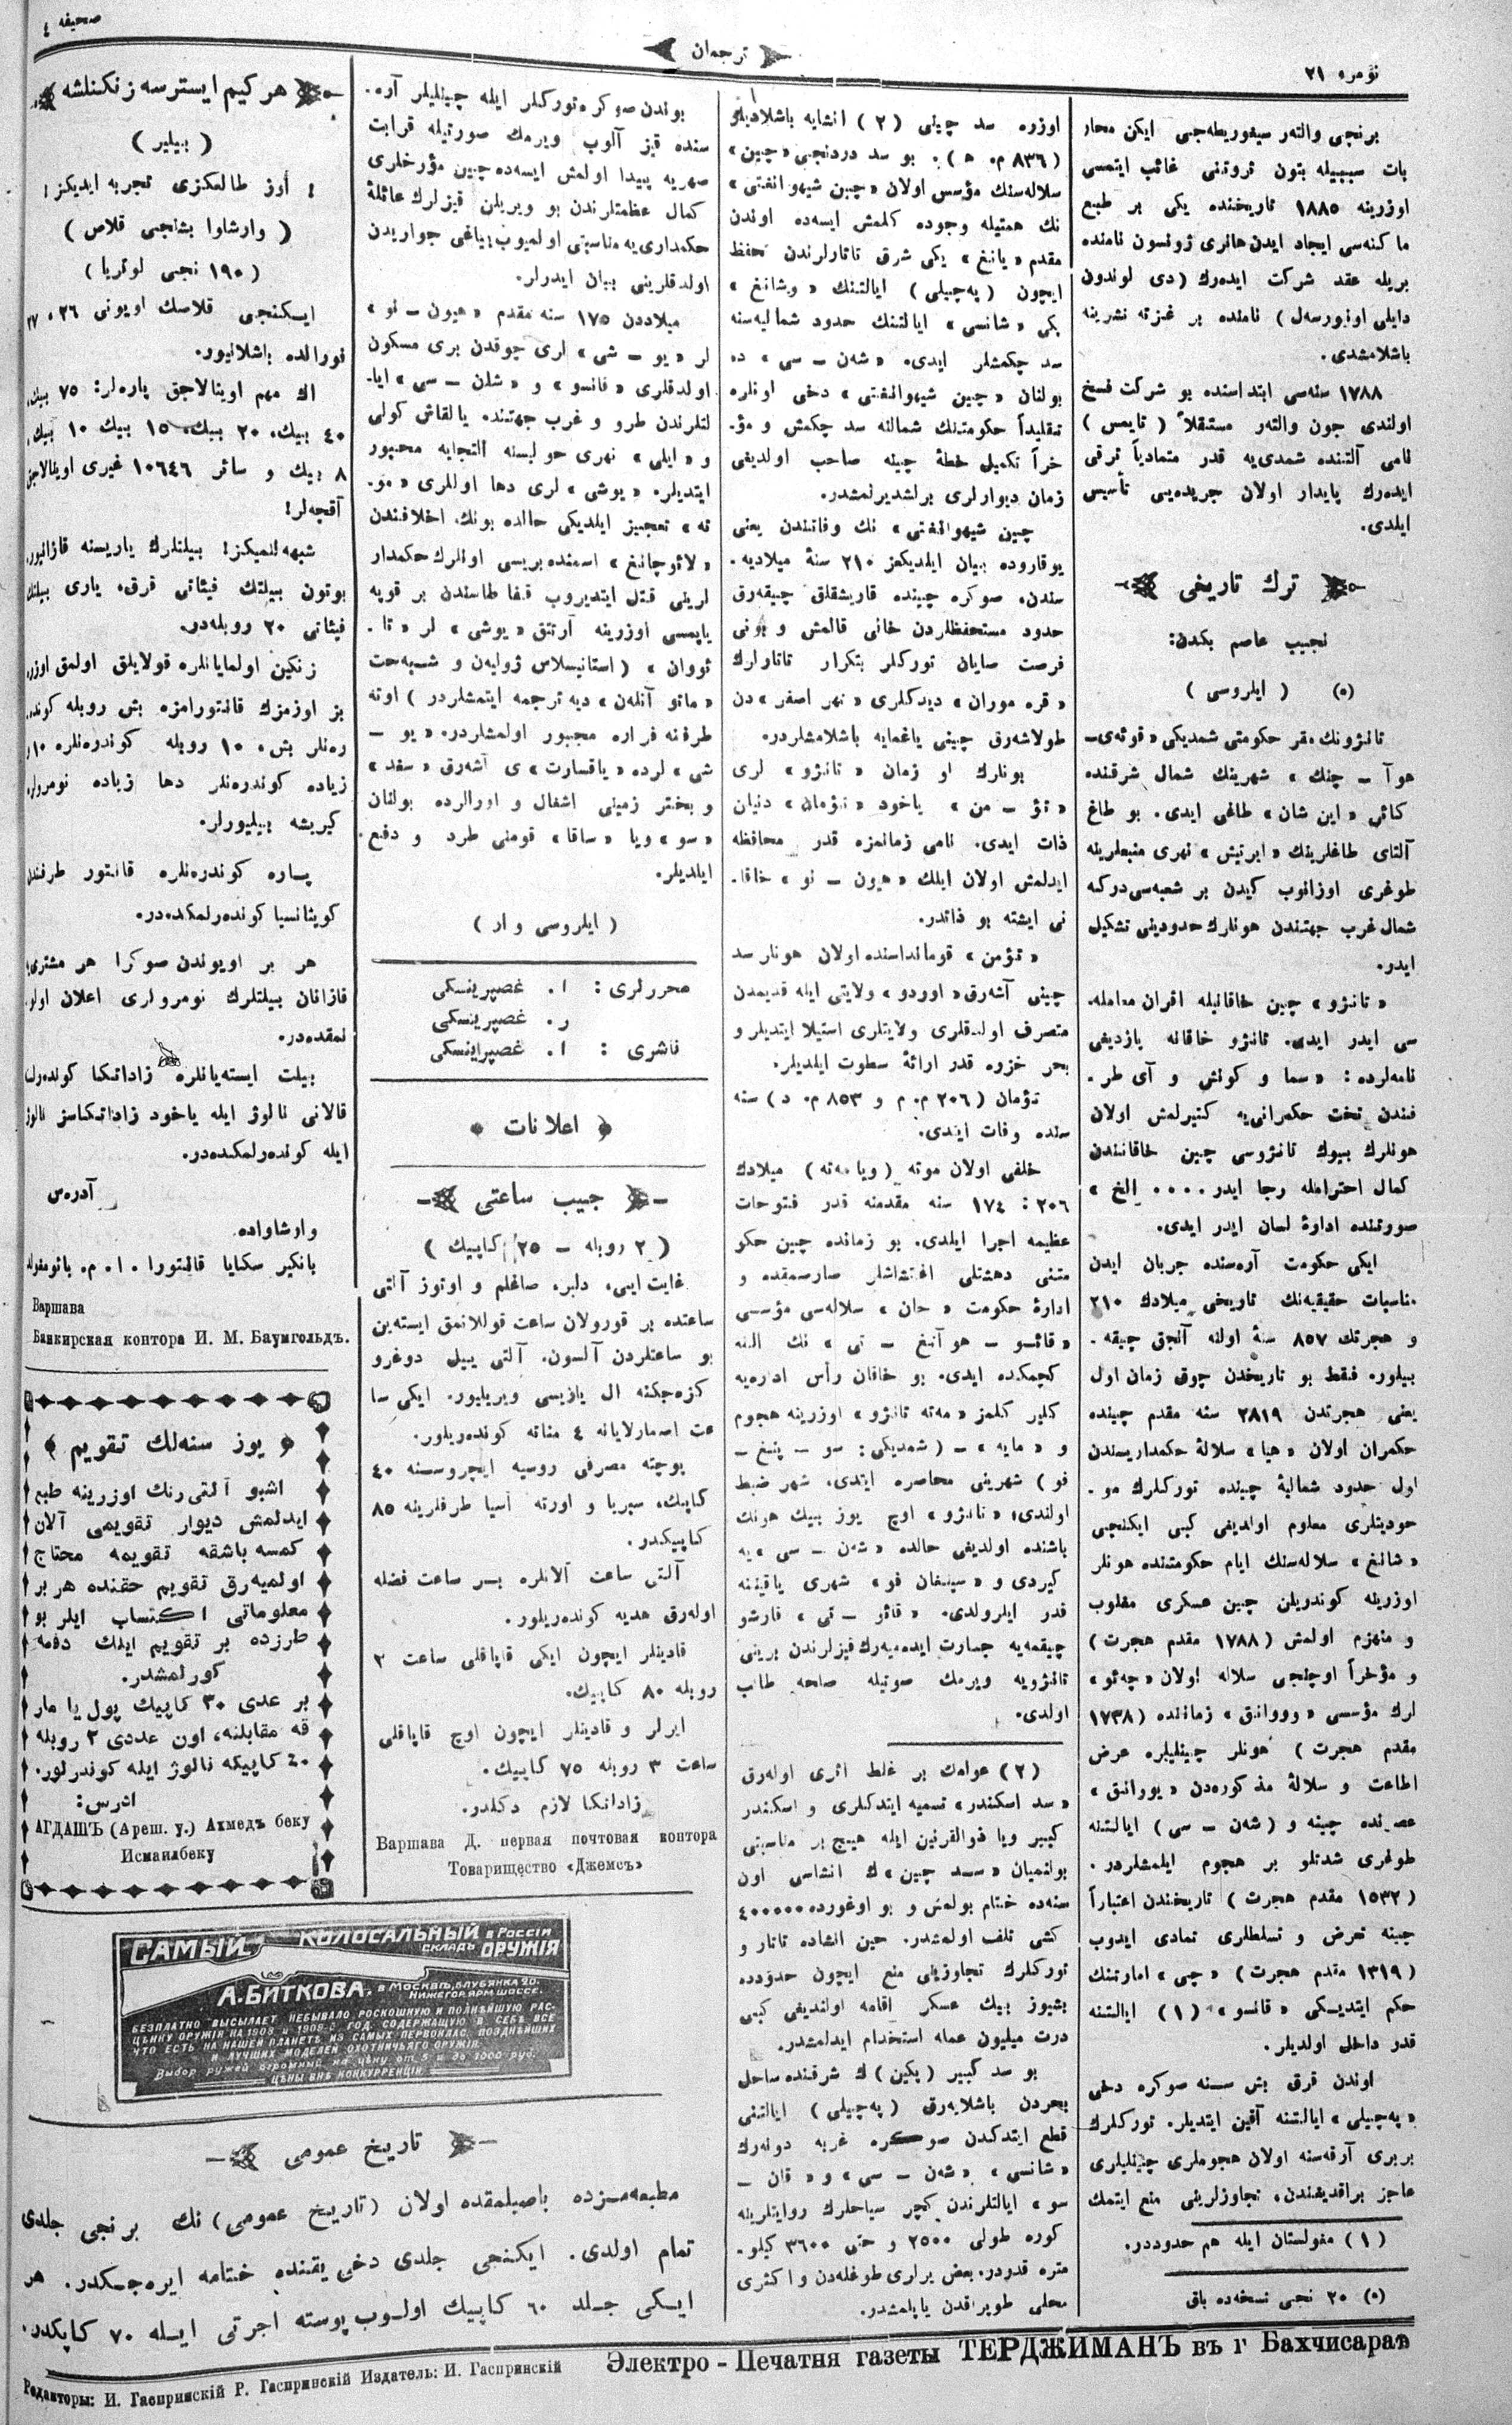 نؤمره ٢١
ترجمان
صحيفه ٤
برنجى والتەر سيغوريطه‌جى ايكن محار
بات سببيله بتون ثروتنى غائب ايتمسى
اوزرينه ١٨٨٥ تاريخنده يكى بر طبع
ما كنه‌سى ايجاد ايدن هانرى ژونسون نامنده
بريله عقد شركت ايده‌رك (دى لوندون
دايلى اونيورسەل) نامنده بر غزته نشرينه
باشلامشدى.
١٧٨٨ سنه‌سى ابتداسنده بو شركت فسخ
اولندى جون والتەر مستقلاً (تايمس)
نامى آلتنده شمدى‌يه قدر متمادياً ترقى
ايده‌رك پايدار اولان جريده‌يى تأسيس
ايلدى.
ترك تاريخى
نجيب عاصم بكدن:
(٥) (ايلروسى)
تانژونك مقر حكومتى شمديكى «قوئه‌ى–
هوآ – چنك» شهرينك شمال شرقنده
كائن «اين شان» طاغى ايدى. بو طاغ
آلتاى طاغلرينك «ايرتيش» نهرى منبعلرينه
طوغرى اوزانوب كيدن بر شعبه‌سى‌دركه
شمال غرب جهتندن هونلرك حدودينى تشكيل
ايدر.
«تانژو» چين خاقانيله اقران معامله‌
سى ايدر ايدى. تانژو خاقانه يازديغى
نامه‌لرده: «سما و كونش و آى طر‌
فندن تخت حكمرانى‌يه كتيرلمش اولان
هونلرك بيوك تانژوسى چين خاقانندن
كمال احترامله رجا ايدر.... الخ»
صورتنده ادارۀ لسان ايدر ايدى.
ايكى حكومت آره‌سنده جريان ايدن
مناسبات حقيقيه‌نك تاريخى ميلادك ٢١٠
و هجرتك ٨٥٧ سنۀ اولنه آنجق چيقه‌
بيلور. فقط بو تاريخدن چوق زمان اول
يعنى هجرتدن ٢٨١٩ سنه مقدم چينده
حكمران اولان «هيا» سلالۀ حكمداريسندن
اول حدود شماليۀ چينده توركلرك مو‌
جوديتلرى معلوم اولديغى كبى ايكنجى
«شانغ» سلاله‌سنك ايام حكومتنده هونلر
اوزرينه كوندريلن چين عسكرى مغلوب
و منهزم اولمش (١٧٨٨ مقدم هجرت)
و مؤخراً اوچنجى سلاله اولان «چه‌ئو»
لرك مؤسسى «وووانق» زماننده (١٧٣٨
مقدم هجرت) هونلر چينليلره عرض
اطاعت و سلالۀ مذكوره‌دن «يووانق»
عصرنده چينه و (شه‌ن – سى) ايالتنه
طوغرى شدتلو بر هجوم ايلمشلردر.
(١٥٣٢ مقدم هجرت) تاريخندن اعتباراً
چينه تعرض و تسلطلرى تمادى ايدوب
(١٣١٩ مقدم هجرت) «چى» امارتنك
حكم ايتديكى «قانسو» (١) ايالتنه
قدر داخل اولديلر.
اوندن قرق بش سنه صوكره دخى
«په‌چيلى» ايالتنه آقين ايتديلر. توركلرك
بربرى آرقه‌سنه اولان هجوملرى چينليلرى
عاجز براقديغندن، تجاوزلرينى منع ايتمك
(١) مغولستان ايله هم حدوددر.
(٥) ٢٠ نجى نسخه‌ده باق
اوزره سد چينى (٢) انشايه باشلاديلر
(٨٣٦ م. ه). بو سد دردنجى «چين»
سلاله‌سنك مؤسس اولان «چين شيهوانغتى»
نك همتيله وجوده كلمش ايسه‌ده اوندن
مقدم «يانغ» يكى شرق تاتارلرندن تحفظ
ايچون (په‌چيلى) ايالتنك «وشانغ»
يكى «شانسى» ايالتنك حدود شماليه‌سنه
سد چكمشلر ايدى. «شه‌ن – سى» ده
بولنان «چين شيهوانغتى» دخى اونلره
تقليداً حكومتنك شمالنه سد چكمش و مؤ‌
خراً تكميل خطۀ چينه صاحب اولديغى
زمان ديوارلرى برلشديرلمشدر.
چين شيهوانغتى» نك وفاتندن يعنى
يوقاروده بيان ايلديكمز ٢١٠ سنۀ ميلاديه‌
سندن صوكره چينده قاريشقلق چيقه‌رق
حدود مستحفظلردن خالى قالمش و بونى
فرصت صايان توركلر بتكرار تاتارلرك
«قره موران» ديدكلرى «نهر اصفر» دن
طولاشه‌رق چينى ياغمايه باشلامشلردر.
بونلرك او زمان «تانژو» لرى
«تؤ – من» ياخود «تؤمان» دنيلن
ذات ايدى. نامى زمانمزه قدر محافظه
ايدلمش اولان ايلك «هيون – نو» خاقا‌
نى ايشته بو ذاتدر.
«تؤمن» قومانداسنده اولان هونلر سد
چينى آشه‌رق «اوردو» ولايتى ايله قديمدن
متصرف اولدقلرى ولايتلرى استيلا ايتديلر و
بحر خزره قدر ارائۀ سطوت ايلديلر.
تؤمان (٢٠٦ م. م و ٨٥٣ م. د) سنه
سنده وفات ايتدى.
خلفى اولان موته (ويا مه‌ته) ميلادك
٢٠٦ : ١٧٤ سنه مقدمنه قدر فتوحات
عظيمه اجرا ايلدى. بو زمانده چين حكو
متنى دهشتلى اغتشاشلر صارسمقده و
ادارۀ حكومت «خان» سلاله‌سى مؤسسى
«قائسو – هوآنغ – تى» نك النه
كچمكده ايدى. بو خاقان رأس اداره‌يه
كلير كلمز «مه‌ته تانژو» اوزرينه هجوم
و «مايه» – (شمديكى: سو – پنغ –
فو) شهرينى محاصره ايتدى. شهر ضبط
اولندى؛ «تانژو» اوچ يوز بيك هونك
باشنده اولديغى حالده «شه‌ن – سى» يه
كيردى و «سينغان فو» شهرى ياقيننه
قدر ايلرولدى. «قائو – تى» قارشو
چيقمه‌يه جسارت ايده‌ميه‌رك قيزلرندن برينى
تانژويه ويرمك صوتيله صلحه طالب
اولدى.
(٢) عوامك بر غلط اثرى اوله‌رق
«سد اسكندر» تسميه ايتدكلرى و اسكندر
كبير ويا ذوالقرنين ايله هيچ بر مناسبتى
بولنميان «سد چين» ك انشاسى اون
سنه‌ده ختام بولمش و بو اوغورده ٤٠٠٠٠٠
كشى تلف اولمشدر. حين انشاده تاتار و
توركلرك تجاوزينى منع ايچون حدودده
بشيوز بيك عسكر اقامه اولنديغى كبى
درت ميليون عمله استخدام ايدلمشدر.
بو سد كبير (پكين) ك شرقنده ساحل
بحردن باشلايه‌رق (په‌چيلى) ايالتنى
قطع ايتدكدن صوكره غربه دونه‌رك
«شانسى» «شه‌ن – سى» و «قان –
سو» ايالتلرندن كچر سياحلرك روايتلرينه
كوره طولى ٢٥٠٠ و حتى ٣٦٠٠ كيلو‌
متره قدردر. بعض يرلرى طوغله‌دن و اكثرى
محلى طوپراقدن ياپلمشدر.
بوندن صوكره توركلر ايله چينليلر آره‌
سنده قيز آلوب ويرمك صورتيله قرابت
صهريه پيدا اولمش ايسه‌ده چين مؤرخلرى
كمال عظمتلرندن بو ويريلن قيزلرك عائلۀ
حكمدارى‌يه مناسبتى اولميوب بياغى جواريدن
اولدقلرينى بيان ايدرلر.
ميلاددن ١٧٥ سنه مقدم «هيون – نو»
لر «يو – شى» لرى چوقدن برى مسكون
اولدقلرى «قانسو» و «شلن – سى» ايا‌
لتلرندن طرد و غرب جهتنده يالقاش كولى
و «ايلى» نهرى حوليسنه التجايه مجبور
ايتديلر. «يوشى» لرى دها اوللرى «مو‌
ته» تعجيز ايلديكى حالده بونك اخلافندن
«لائوچانغ» اسمنده بريسى اونلرك حكمدار
لرينى قتل ايتديروب قفا طاسندن بر قوپه
ياپمسى اوزرينه آرتق «يوشى» لر «تا‌
ئووان» (استانيسلاس ژوليەن و شبهه‌حت
«مائو آنلەن» ديه ترجمه ايتمشلردر) اوته
طرفنه فراره مجبور اولمشلردر. «يو –
شى» لرده «ياقسارت» ى آشه‌رق «سغد»
و بختر زمينى اشغال و اورالرده بولنان
«سو» ويا «ساقا» قومنى طرد و دفع
ايلديلر.
(ايلروسى وار)
محررلرى: ا. غصپرينسكى
ر. غصپرينسكى
ناشرى: ا. غصپرينسكى
اعلانات
جيب ساعتى
(٢ روبله – ٢٥ كاپيك)
غايت ايى، دلبر، صاغلم و اوتوز آلتى
ساعتده بر قورولان ساعت قوللانمق ايسته‌ين
بو ساعتلردن آلسون. آلتى ييل دوغرو
كزه‌جكنه ال يازيسى ويريليور. ايكى سا
عت اصمارلايانه ٤ مناته كوندەريلور.
پوچته مصرفى روسيه ايچروسنه ٤٠
كاپيك، سبريا و اورته آسيا طرفلرينه ٨٥
كاپيكدر.
آلتى ساعت آلانلره بر ساعت فضله
اوله‌رق هديه كوندەريلور.
قادينلر ايچون ايكى قاپاقلى ساعت ٢
روبله ٨٠ كاپيك.
ايرلر و قادينلر ايچون اوچ قاپاقلى
ساعت ٣ روبله ٧٥ كاپيك.
زاداتكا لازم دكلدر.
Варшава Д. первая почтовая контора
Товарищество «Джемсъ»
هر كيم ايسترسه زنكنلشه
(بيلير)
! اوز طالعكزى تجربه ايديكز!
(وارشاوا بشنجى قلاص)
(١٩٠ نجى لوتريا)
ايكنجى قلاسك اويونى ٢٦، ٢٧
فورالده باشلانيور.
اك مهم اوينالاجق پاره‌لر: ٧٥ بيك،
٤٠ بيك، ٢٠ بيك، ١٥ بيك ١٠ بيك،
٨ بيك و سائر ١٠٦٤٦ غيرى اوينالاجق
آقچه‌لر!
شبهه لنميكز! بيلتلرك ياريسنه قازانيور.
بوتون بيلتك فيئاتى قرق، يارى بيلتك
فيئاتى ٢٠ روبله‌در.
زنكين اولمايانلره قولايلق اولمق اوزره
بز اوزمزك قانتورامزه بش روبله كوند‌
ره‌نلر بش، ١٠ روبله كوندەره‌نلره ١٠،
زياده كوندەره‌نلر دها زياده نومرولره
كيريشه بيليورلر.
پاره كوندەره‌نلره قانتور طرفندن
كويتانسيا كوندەرلمكده‌در.
هر بر اويوندن صوكرا هر مشترى‌يه
قازانان بيلتلرك نومرولرى اعلان اولو‌
نمقده‌در.
بيلت ايسته‌يانلره زاداتكا كوندەرلسه
قالانى نالوژ ايله ياخود زاداتكاسز نالوژ
ايله كوندەرلمكده‌در.
آدرەس
وارشاواده،
بانكير سكايا قانتورا. ا. م. بائومغولد
Варшава
Банкирская контора И. М. Баумгольдъ.
يوز سنه‌لك تقويم
اشبو آلتى رنك اوزرينه طبع
ايدلمش ديوار تقويمى آلان
كمسه باشقه تقويمه محتاج
اولميه‌رق تقويم حقنده هر بر
معلوماتى اكتساب ايلر بو
طرزده بر تقويم ايلك دفعه
كورلمشدر.
بر عدى ٣٠ كاپيك پول يا مار
قه مقابلنه، اون عددى ٢ روبله
٤٠ كاپيكه نالوژ ايله كوندرلور.
ادرس:
АГДАШЪ (Ареш. у.) Ахмедъ беку
Исмаилбеку
САМЫЙ КОЛОСАЛЬНЫЙ в России
СКЛАДЪ ОРУЖІЯ
А. БИТКОВА. в Москвѣ, Б. ЛУБЯНКА 20.
Нижегор. ярм. шоссе.
БЕЗПЛАТНО ВЫСЫЛАЕТ НЕБЫВАЛО РОСКОШНУЮ И ПОЛНѢЙШУЮ РАС-
ЦѢНКУ ОРУЖІЯ НА 1908 и 1908-9 ГОД, СОДЕРЖАЩУЮ В СЕБѢ ВСЕ
ЧТО ЕСТЬ НА НАШЕЙ ПЛАНЕТѢ ИЗ САМЫХ ПЕРВОКЛАС. ПОЗДНѢЙШИХ
И ЛУЧШИХ МОДЕЛЕЙ ОХОТНИЧЬЯГО ОРУЖІЯ.
Выбор ружей огромный на цѣну от 5 и до 1000 руб.
ЦѢНЫ ВНѢ КОНКУРРЕНЦІИ
تاريخ عمومى
مطبعه‌مزده باصيلمقده اولان (تاريخ عمومى) نك برنجى جلدى
تمام اولدى. ايكنجى جلدى دخى يقنده ختامه ايره‌جكدر. هر
ايكى جلد ٦٠ كاپيك اولوب پوسته اجرتى ايله ٧٠ كاپكدر.
Электро - Печатня газеты ТЕРДЖИМАНЪ въ г Бахчисараѣ
Редакторы: И. Гаспринскій Р. Гаспринскій Издатель: И. Гаспринскій